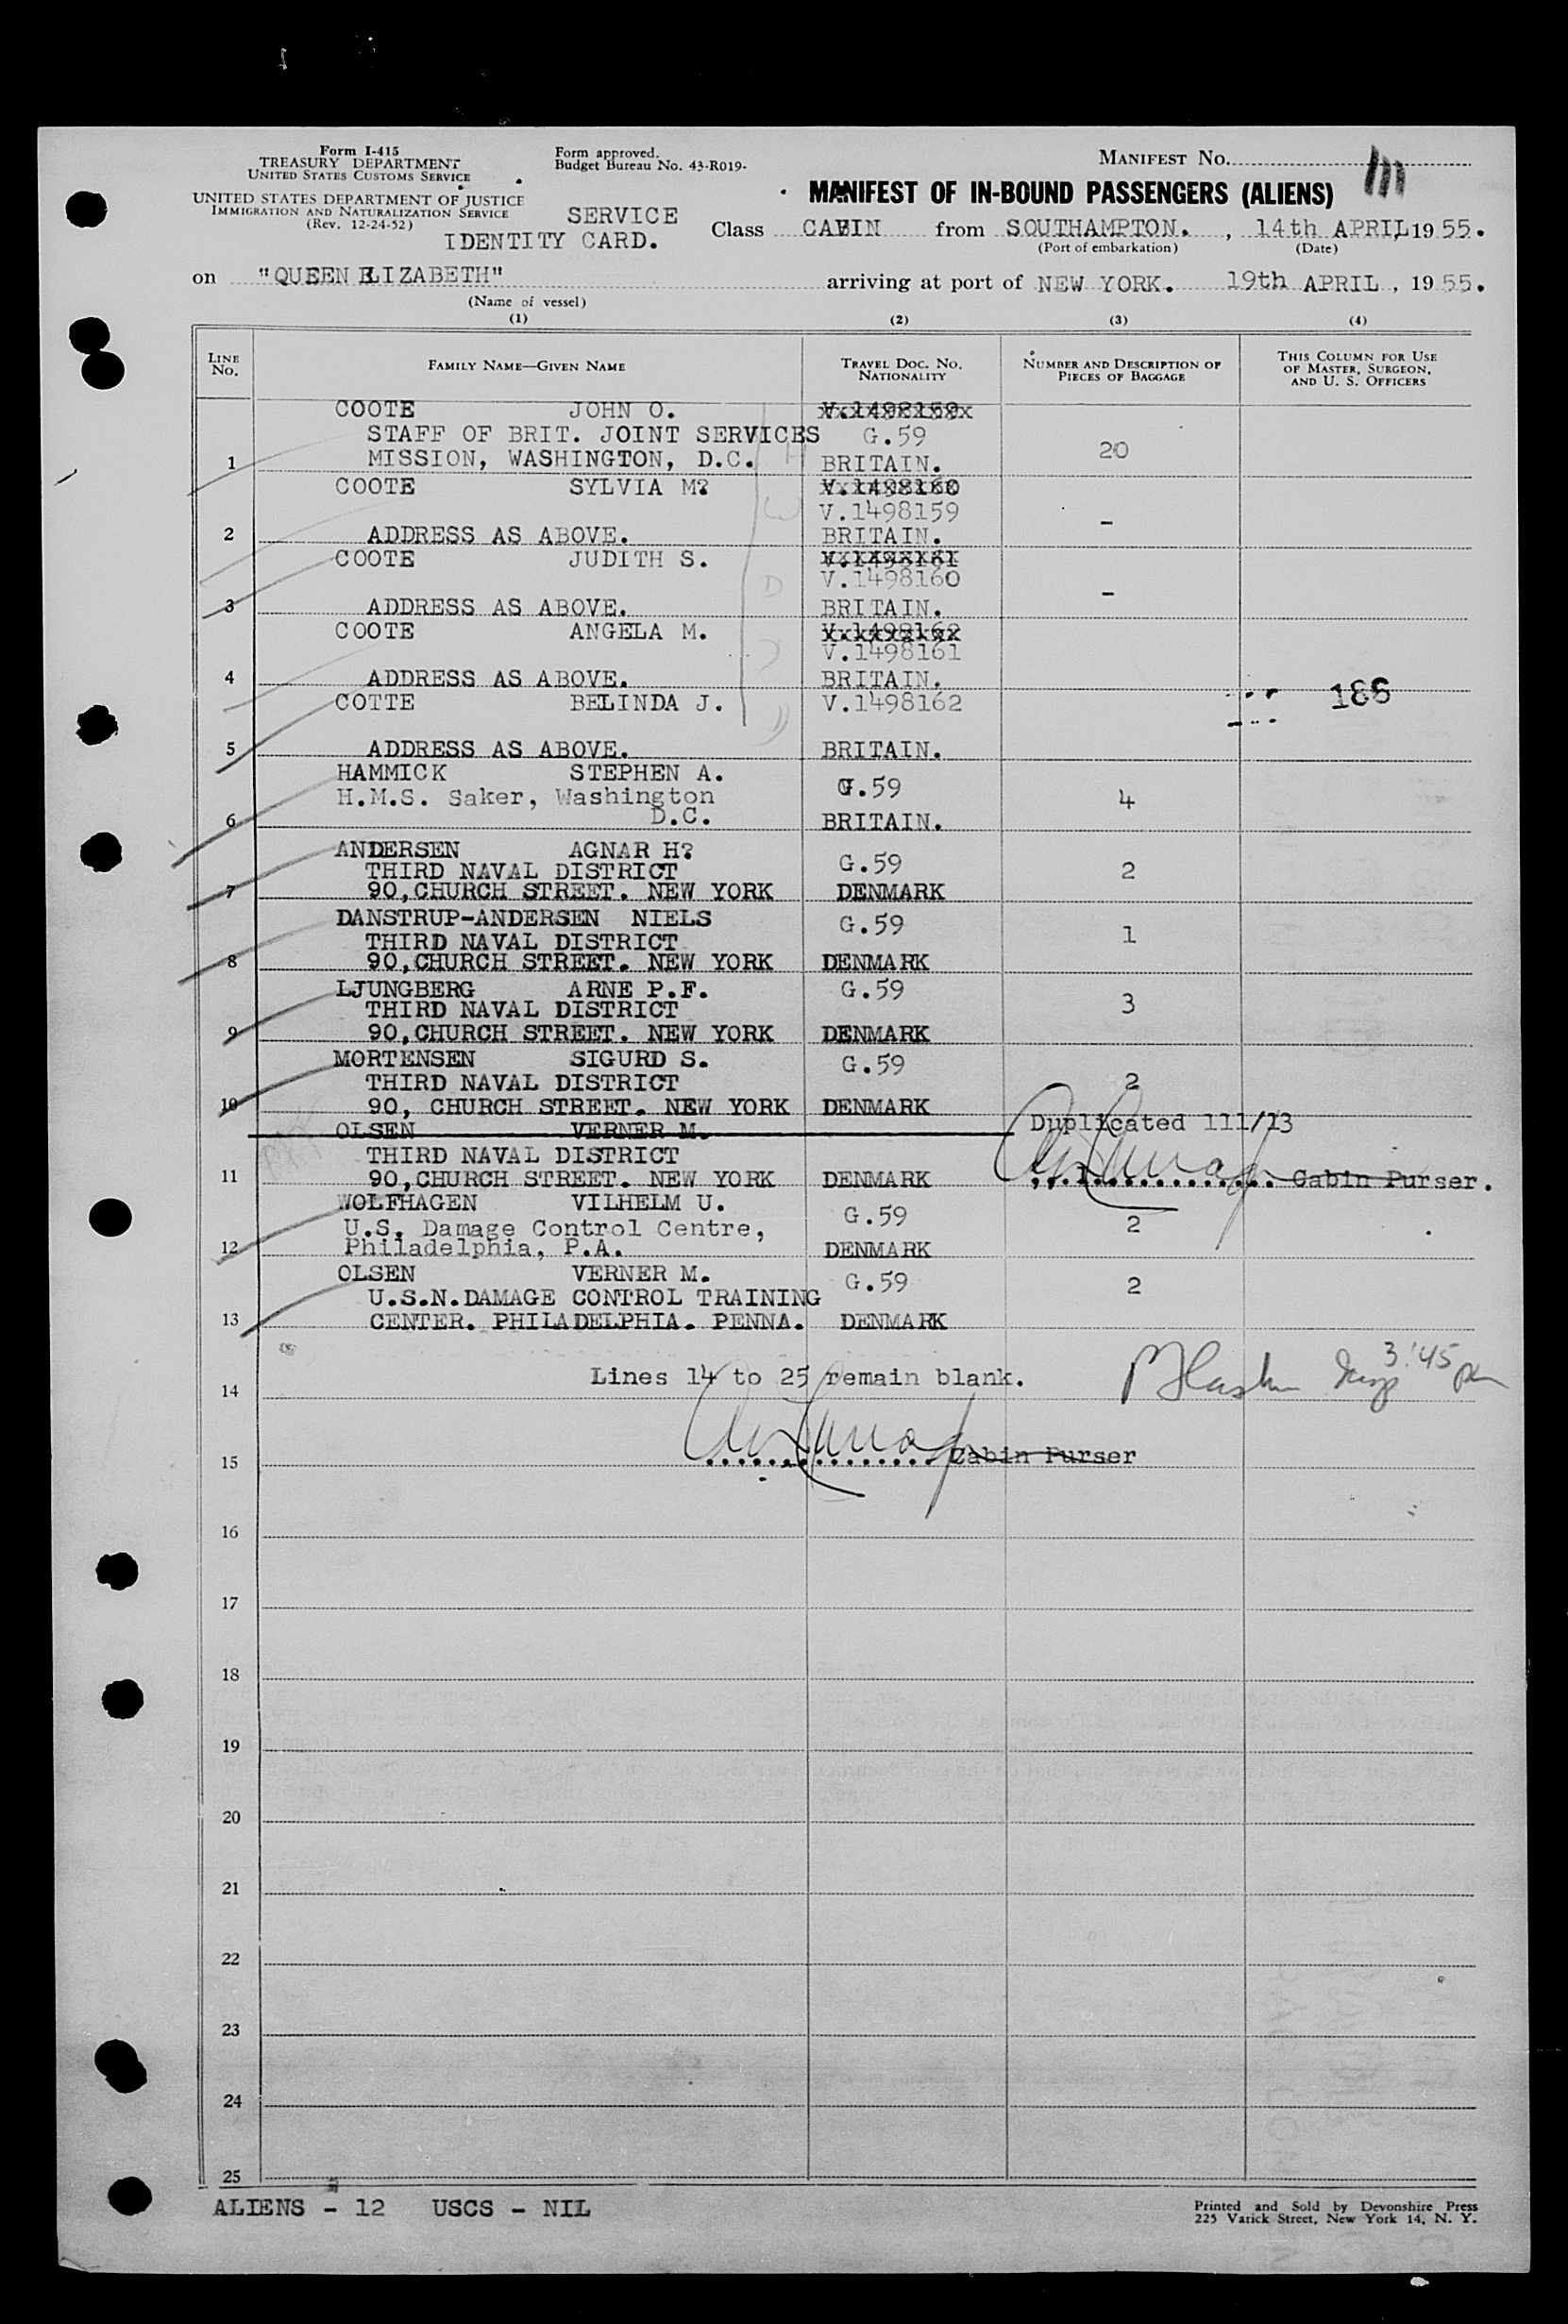 Form I-415
TREASURY DEPARTMENT
UNITED STATES CUSTOMS SERVICE
UNITED STATES DEPARTMENT OF JUSTICE
IMMIGRATION AND NATURALIZATION SERVICE
(Rev. 12-24-52)
Form approved.
Budget Bureau No. 43-R019-
SERVICE
IDENTITY CARD.
MANIFEST NO. 111
MANIFEST OF IN-BOUND PASSENGERS (ALIENS)
Class CABIN from SOUTHAMPTON. , 14th APRIL, 1955.
(Port of embarkation) (Date)
on "QUEEN ELIZABETH" arriving at port of NEW YORK. 19th APRIL , 1955.
(Name of vessel)
(1) (2) (3) (4)
LINE NO.
FAMILY NAME—GIVEN NAME
TRAVEL DOC. NO. NATIONALITY
NUMBER AND DESCRIPTION OF PIECES OF BAGGAGE
THIS COLUMN FOR USE OF MASTER, SURGEON, AND U. S. OFFICERS
COOTE JOHN O. V.1498159
STAFF OF BRIT. JOINT SERVICES G.59
1 MISSION, WASHINGTON, D.C. BRITAIN. 20
COOTE SYLVIA M? V.1498160
V.1498159
2 ADDRESS AS ABOVE. BRITAIN. -
COOTE JUDITH S. V.1498161
V.1498160
3 ADDRESS AS ABOVE. BRITAIN. -
COOTE ANGELA M. V.1498162
V.1498161
4 ADDRESS AS ABOVE. BRITAIN.
COTTE BELINDA J. V.1498162 186
5 ADDRESS AS ABOVE. BRITAIN.
HAMMICK STEPHEN A. G.59
H.M.S. Saker, Washington 4
6 D.C. BRITAIN.
ANDERSEN AGNAR H? G.59
THIRD NAVAL DISTRICT 2
7 90,CHURCH STREET. NEW YORK DENMARK
DANSTRUP-ANDERSEN NIELS G.59
THIRD NAVAL DISTRICT 1
8 90,CHURCH STREET. NEW YORK DENMARK
LJUNGBERG ARNE P.F. G.59
THIRD NAVAL DISTRICT 3
9 90,CHURCH STREET. NEW YORK DENMARK
MORTENSEN SIGURD S. G.59
THIRD NAVAL DISTRICT 2
10 90, CHURCH STREET. NEW YORK DENMARK
OLSEN VERNER M. Duplicated 111/13
THIRD NAVAL DISTRICT
11 90,CHURCH STREET. NEW YORK DENMARK Cabin Purser.
WOLFHAGEN VILHELM U. G.59
U.S. Damage Control Centre, 2
12 Philadelphia, P.A. DENMARK
OLSEN VERNER M. G.59
U.S.N.DAMAGE CONTROL TRAINING 2
13 CENTER. PHILADELPHIA. PENNA. DENMARK
Lines 14 to 25 remain blank. 3:45 pm
14
15 Cabin Purser
16
17
18
19
20
21
22
23
24
25
ALIENS - 12 USCS - NIL
Printed and Sold by Devonshire Press
225 Varick Street, New York 14, N. Y.